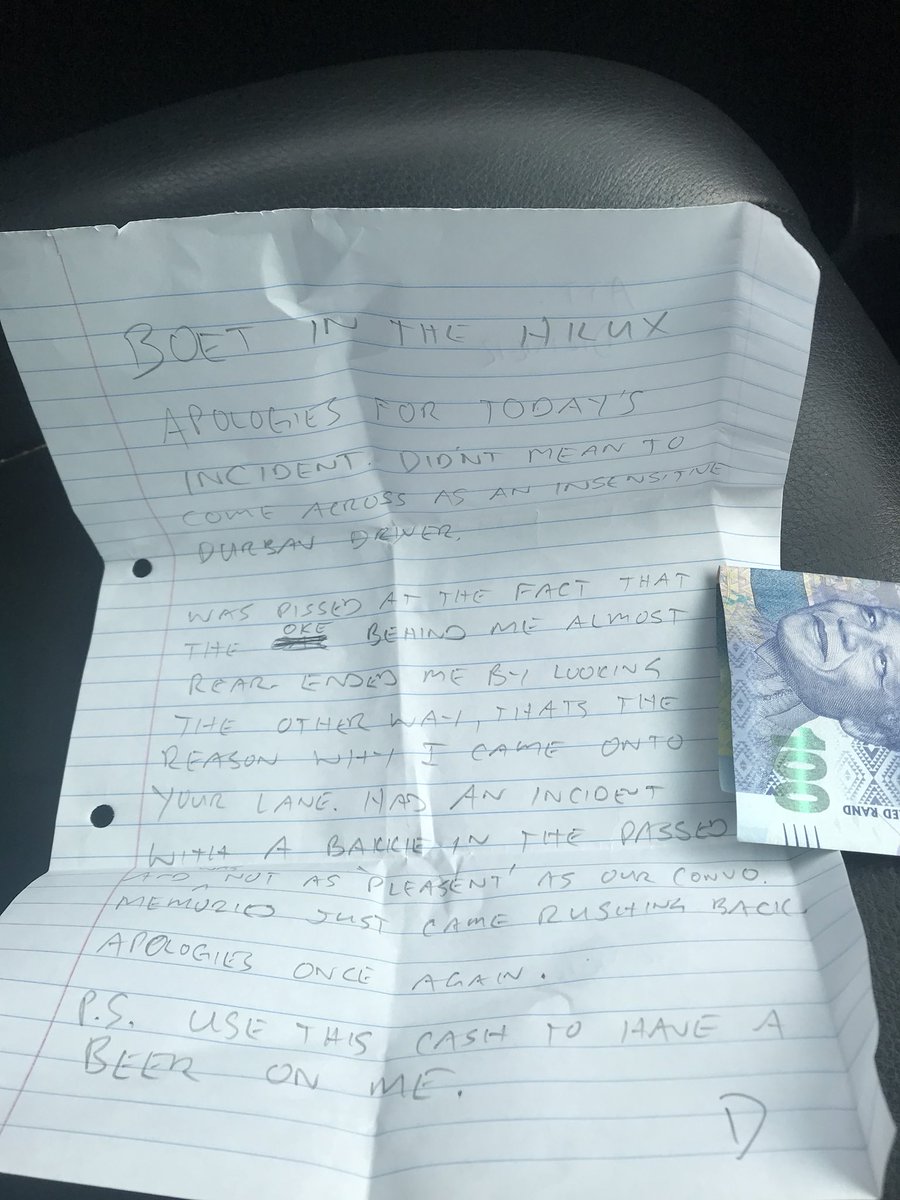 BOET IN THE HILUX
APOLOGIES FOR TODAY'S
INCIDENT. DIDN'T MEAN TO
COME ACROSS AS AN INSENSITIVE
DURBAN DRIVER.
WAS PISSED AT THE FACT THAT
THE OKE BEHIND ME ALMOST
REAR-ENDED ME BY LOOKING
THE OTHER WAY, THATS THE
REASON WHY I CAME ONTO
YOUR LANE. HAD AN INCIDENT
WITH A BAKKIE IN THE PASSED
AND WAS NOT AS 'PLEASENT' AS OUR CONVO.
MEMORIES JUST CAME RUSHING BACK
APOLOGIES ONCE AGAIN.
P.S. USE THIS CASH TO HAVE A
BEER ON ME.
D
100
RAND